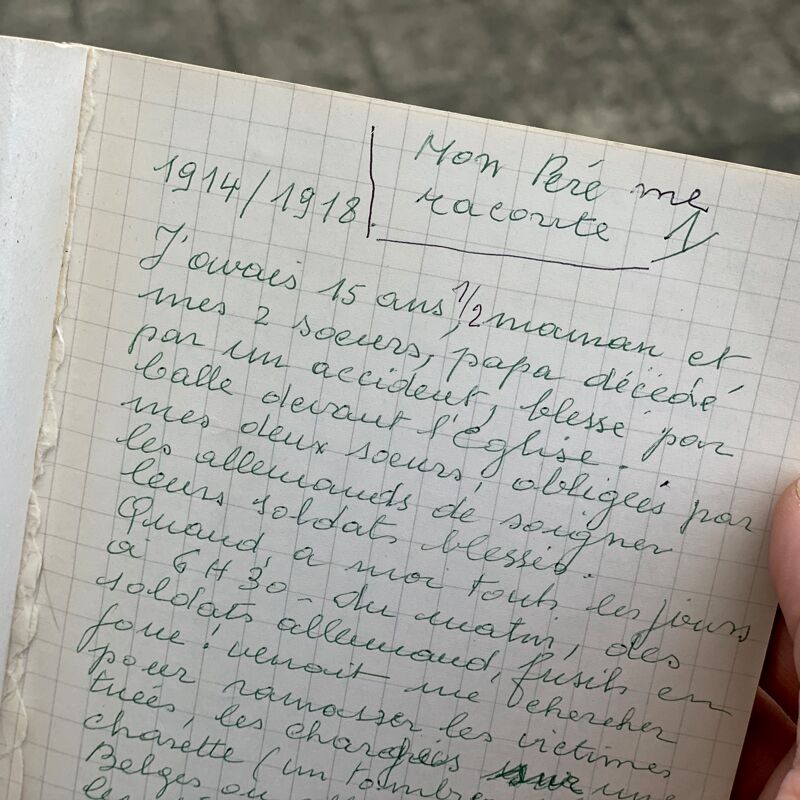 1914/1918
Mon Péré me
raconte 1
J'avais 15 ans, 1/2 maman et
mes 2 soeurs, papa décédé
par un accident, blessé par
balle devant l'église.
mes deux soeurs, obligées par
les allemands de soigner
leurs soldats blessés.
Quand, a moi touts les jours
a 6H30 - du matin, des
soldats allemand, fusils en
joue! venait me chercher
pour ramasser les victimes
tuées, les chargées sur une
charette (un tombre
Belges ou
les